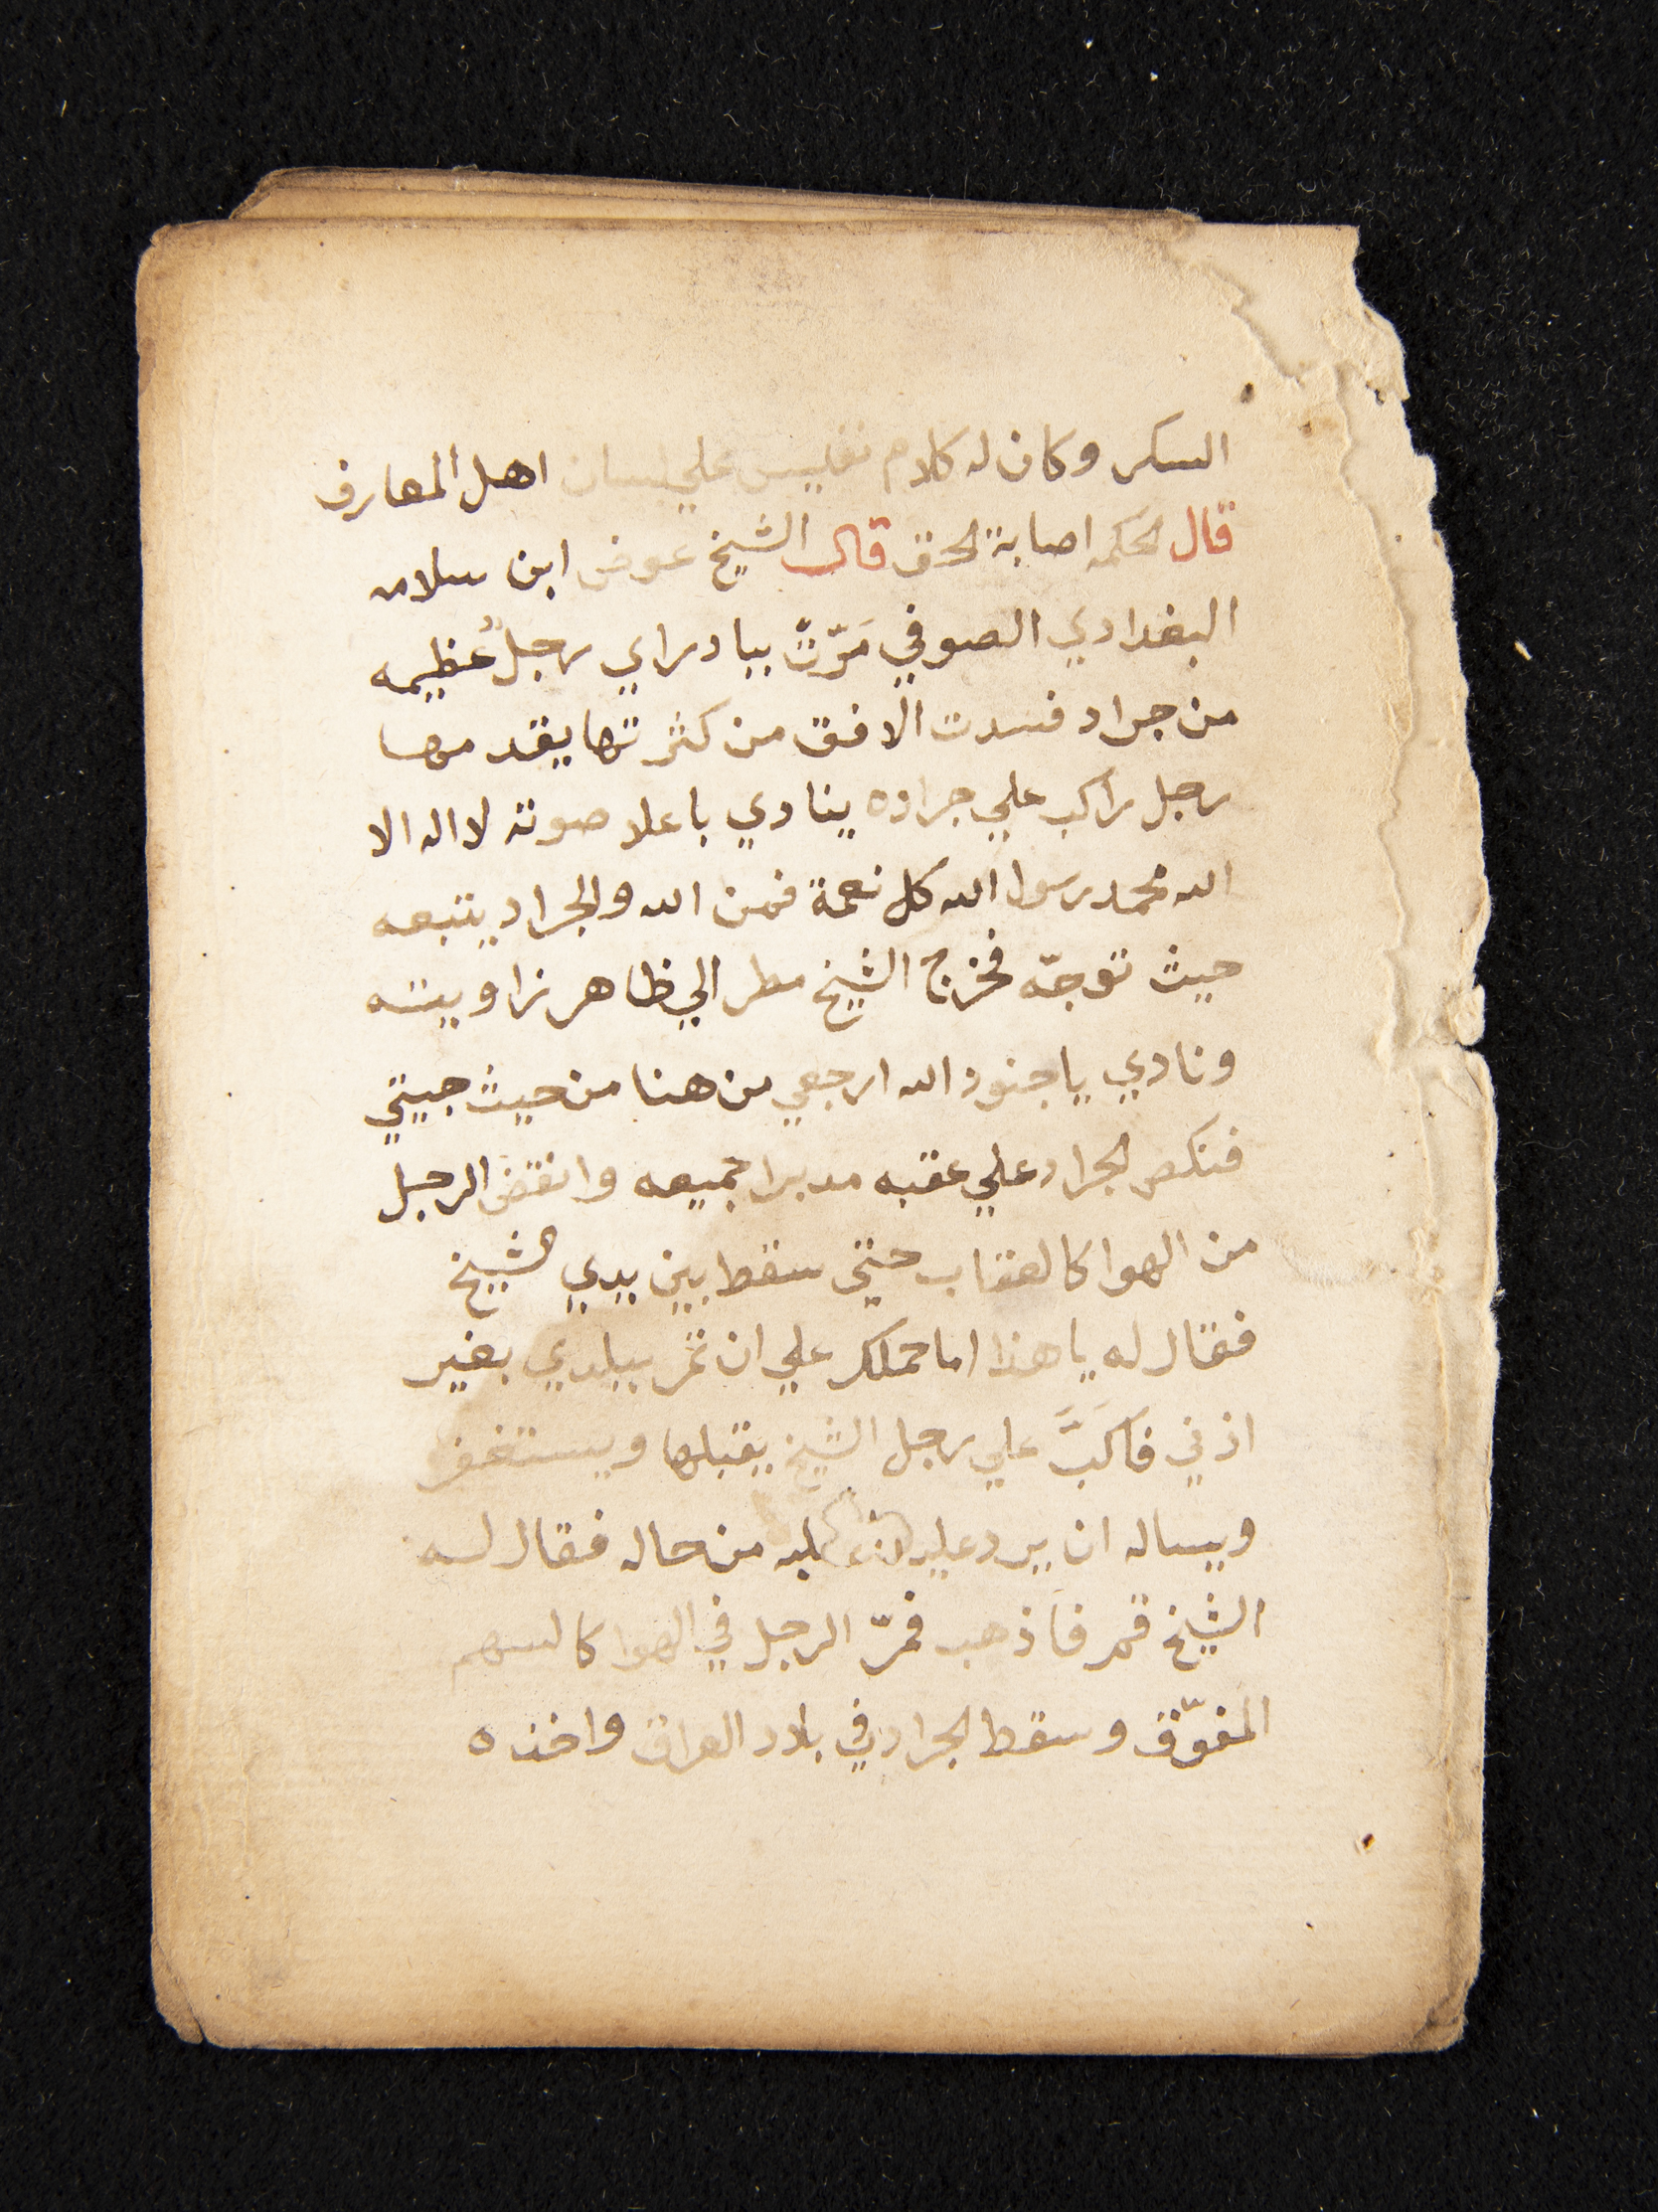 السكر وكان له كلام نفيس علي لسان اهل المعارف
قال الحكمه اصابة الحق قال الشيخ عوض ابن سلامه
البغدادي الصوفي مَرّتْ ببادراي رجلٌ عظيمه
من جراد فسدت الافق من كثرتها يقدمها
رجل راكب علي جراده ينادي باعلا صوته لا اله الا
الله محمد رسول الله كل نعمة فمن الله والجراد يتبعه
حيث توجّه فخرج الشيخ مطر الي ظاهر زاويته
ونادي يا جنود الله ارجعي من هنا من حيث جيتي
فنكص الجراد علي عقبه مدبرا جميعه وانقض الرجل
من الهوا كالعقاب حتي سقط بين يدي الشيخ
فقال له يا هذا اما حملك علي ان تمر ببلدي بغير
اذني فاكَبَّ علي رجل الشيخ يقبلها ويستغفر
ويساله ان يرد عليه من حاله فقال له
الشيخ قم فاذهب فمرّ الرجل في الهوا كالسهم
المفوّق وسقط الجراد في بلاد العراق واخذه